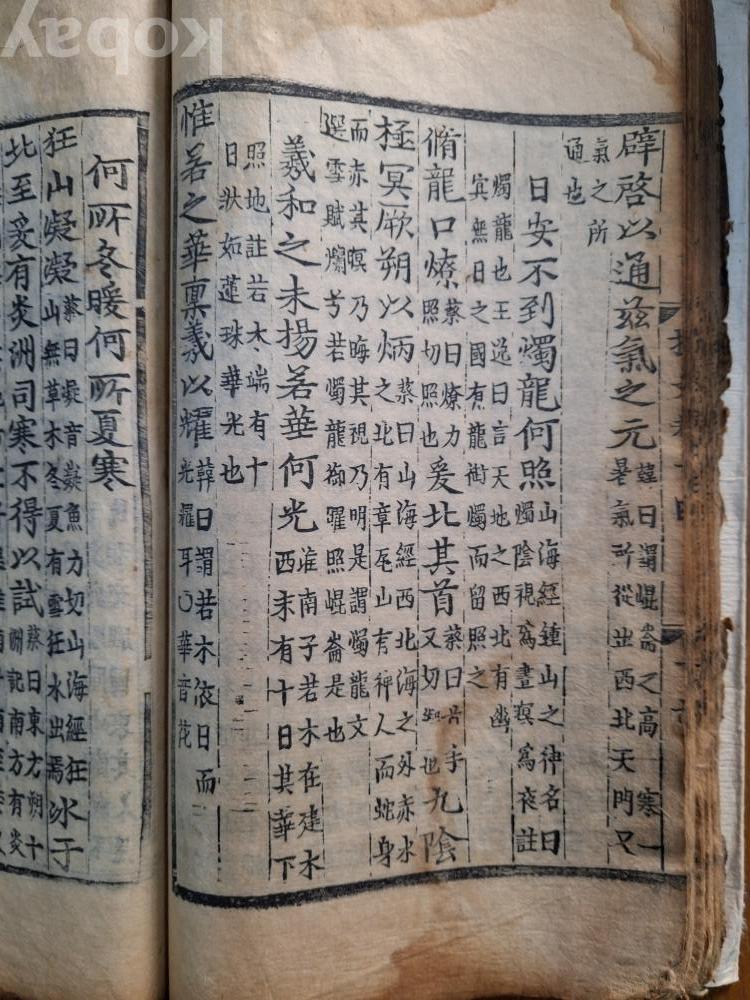 辟啓以通玆氣之元韓曰謂崐崙之高一寒一
暑氣所從出西北天門又
氣之所
通也
日安不到燭龍何照山海經鍾山之神名曰
燭陰視爲晝暝爲夜註
燭龍也王逸曰言天地之西北有幽
冥無日之國有龍衘燭而留照之
脩龍口燎蔡曰燎力照切照也爰北其首蔡曰首手又切也九陰
極冥厥朔以炳蔡曰山海經西北海之外赤水
之北有章尾山有神人而蛇身
而赤其暝乃晦其視乃明是謂燭龍文
選雪賦爛兮若燭龍衘曜照崐崙是也
羲和之未揚若華何光淮南子若木在建木
西末有十日其華下
照地註若木端有十
日狀如蓮珠華光也
惟若之華稟羲以耀韓曰謂若木依日而
光耀耳○華音花
何所冬暖何所夏寒
狂山凝凝蔡曰凝音嶷魚力切山海經狂山無草木冬夏有雪狂水出焉冰于
北至爰有炎洲司寒不得以試蔡曰東方朔十
洲記南方有炎
kobay